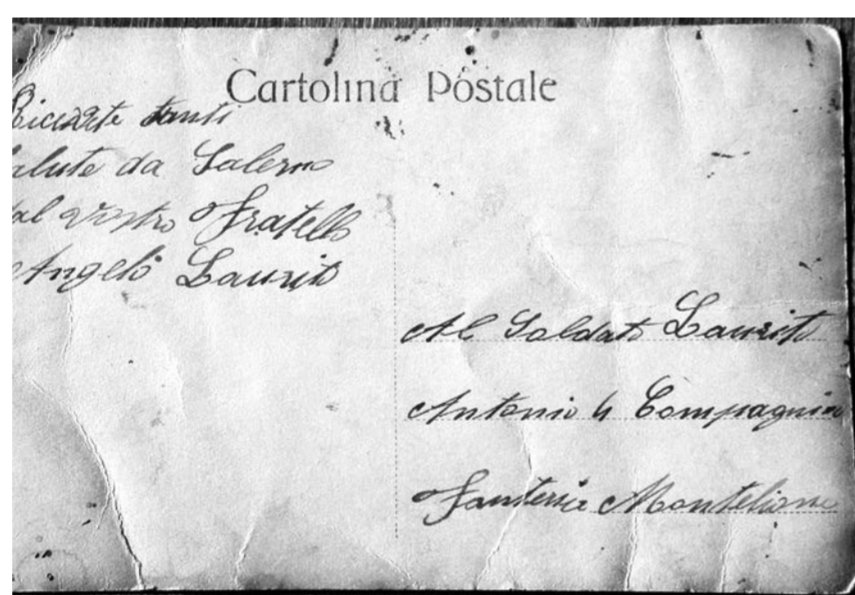 Cartolina Postale
Ricevete tanti
alute da Salerno
dal vostro Fratello
Angelo Laurito
Al Soldato Laurito
Antonio 4 Compagnia
Fanteria Montelione